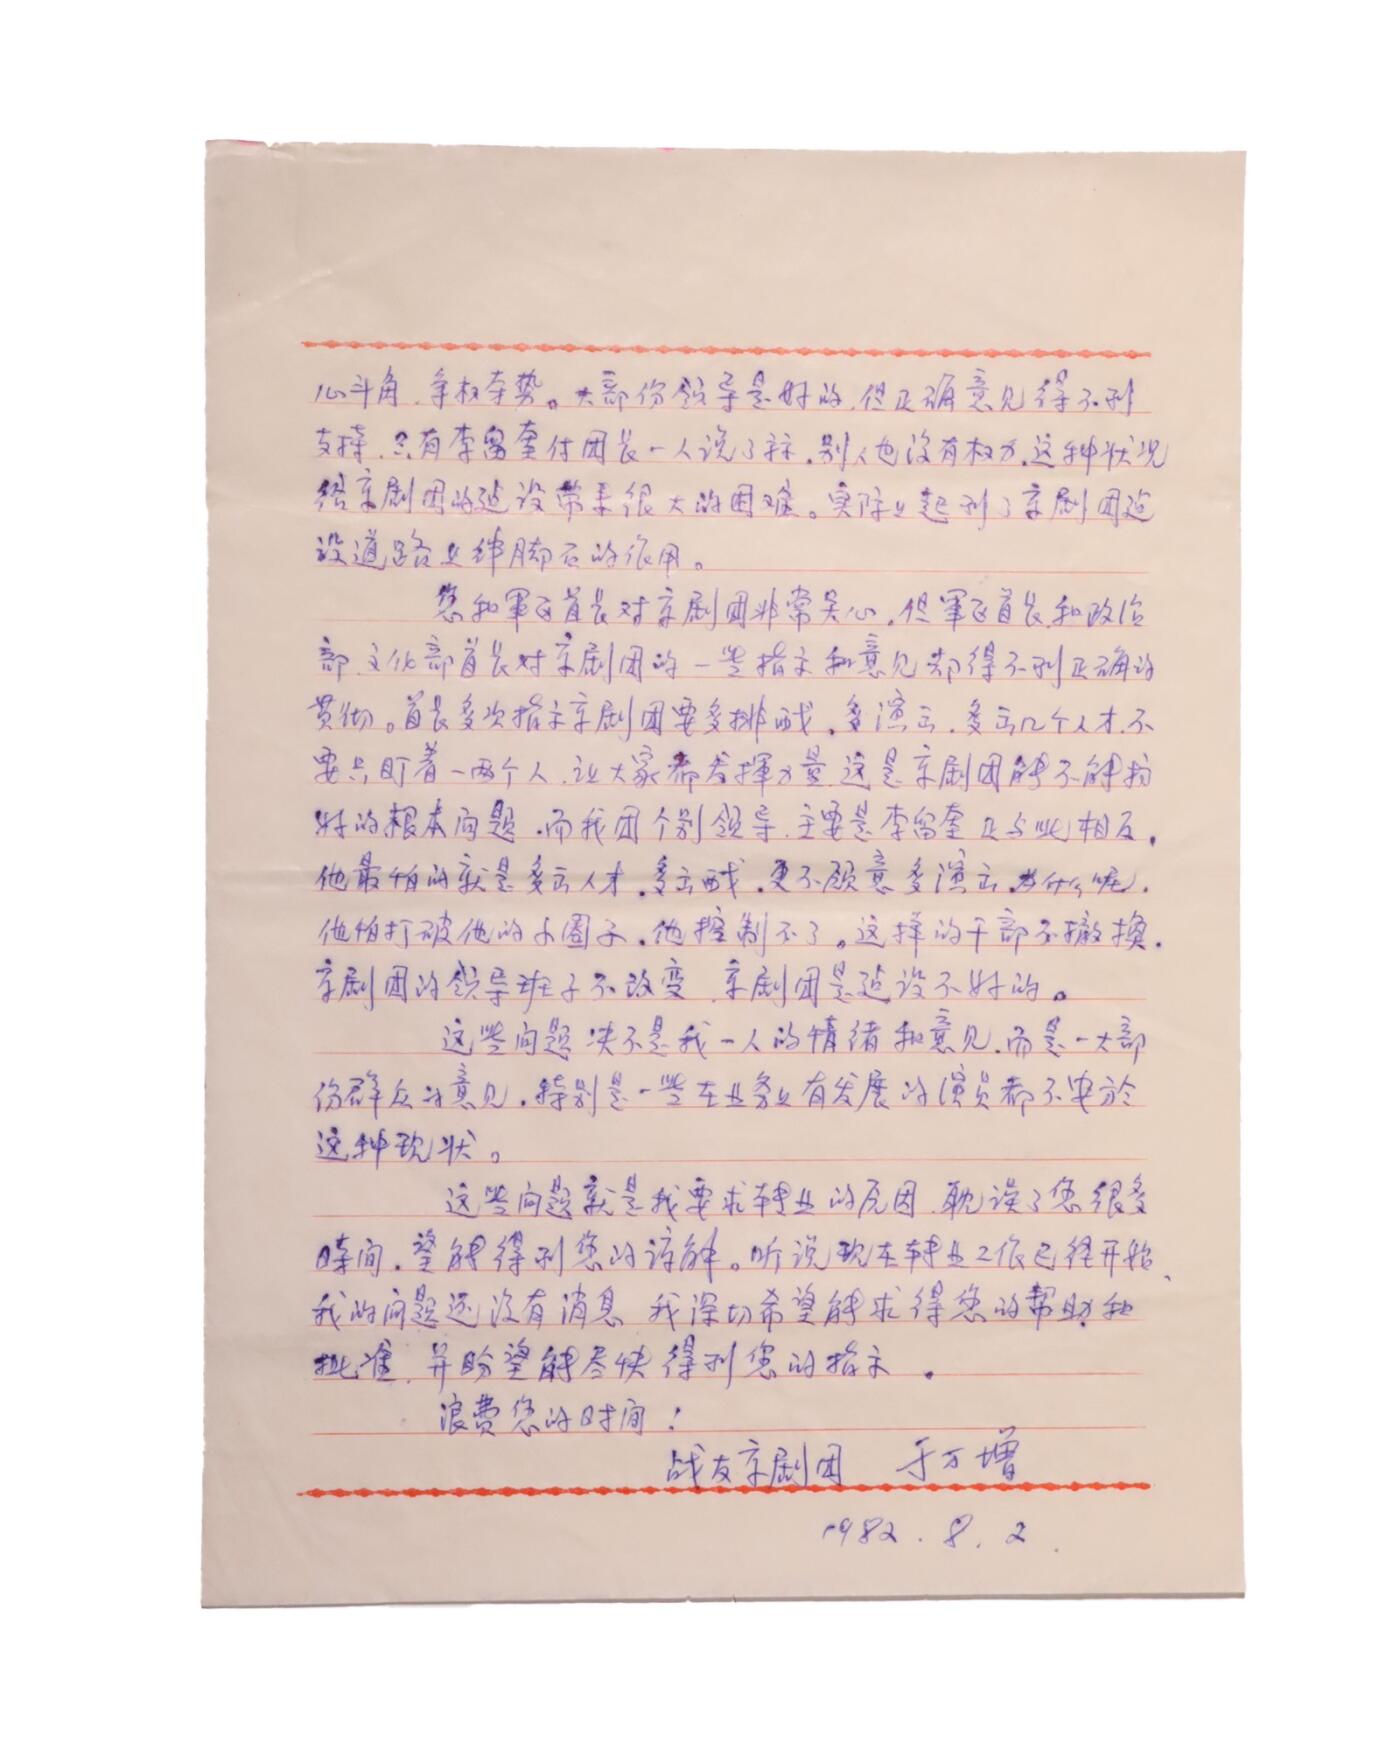 心斗角、争权夺势。大部份领导是好的，但正确意见得不到
支持，只有李留奎付团长一人说了算，别人也没有权力，这种状况
给京剧团的建设带来很大的困难。实际上起到了京剧团建
设道路上绊脚石的作用。
您和軍区首长对京剧团非常关心，但軍区首长和政治
部、文化部首长对京剧团的一些指示和意见却得不到正确的
贯彻。首长多次指示京剧团要多排戏，多演出，多出几个人才，不
要只盯着一两个人，让大家都发揮力量，这是京剧团能不能搞
好的根本问题，而我团个别领导，主要是李留奎正与此相反，
他最怕的就是多出人才，多出戏，更不愿意多演出，为什么呢，
他怕打破他的小圈子，他控制不了。这样的干部不撤换，
京剧团的领导班子不改变，京剧团是建设不好的。
这些问题决不是我一人的情绪和意见，而是一大部
份群众的意见，特别是一些在业务上有发展的演员都不安於
这种现状。
这些问题就是我要求转业的原因，耽误了您很多
時间，望能得到您的谅解。听说现在转业工作已经开始，
我的问题还没有消息，我深切希望能求得您的帮助和
批准，并盼望能尽快得到您的指示。
浪费您的时间！
战友京剧团 于万增
1982.8.2.